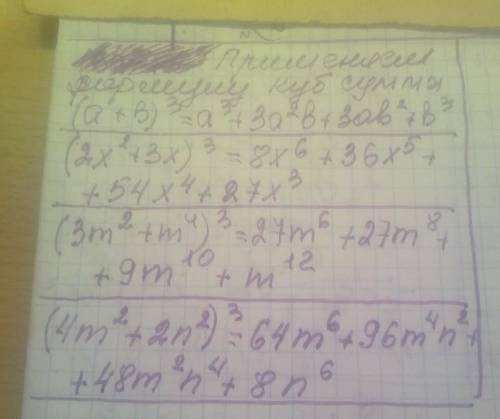 Применяем
формулу куб суммы
(a+b)³=a³+3a²b+3ab²+b³
(2x²+3x)³=8x⁶+36x⁵+
+54x⁴+27x³
(3m²+m⁴)³=27m⁶+27m⁸+
+9m¹⁰+m¹²
(4m²+2n²)³=64m⁶+96m⁴n²+
+48m²n⁴+8n⁶